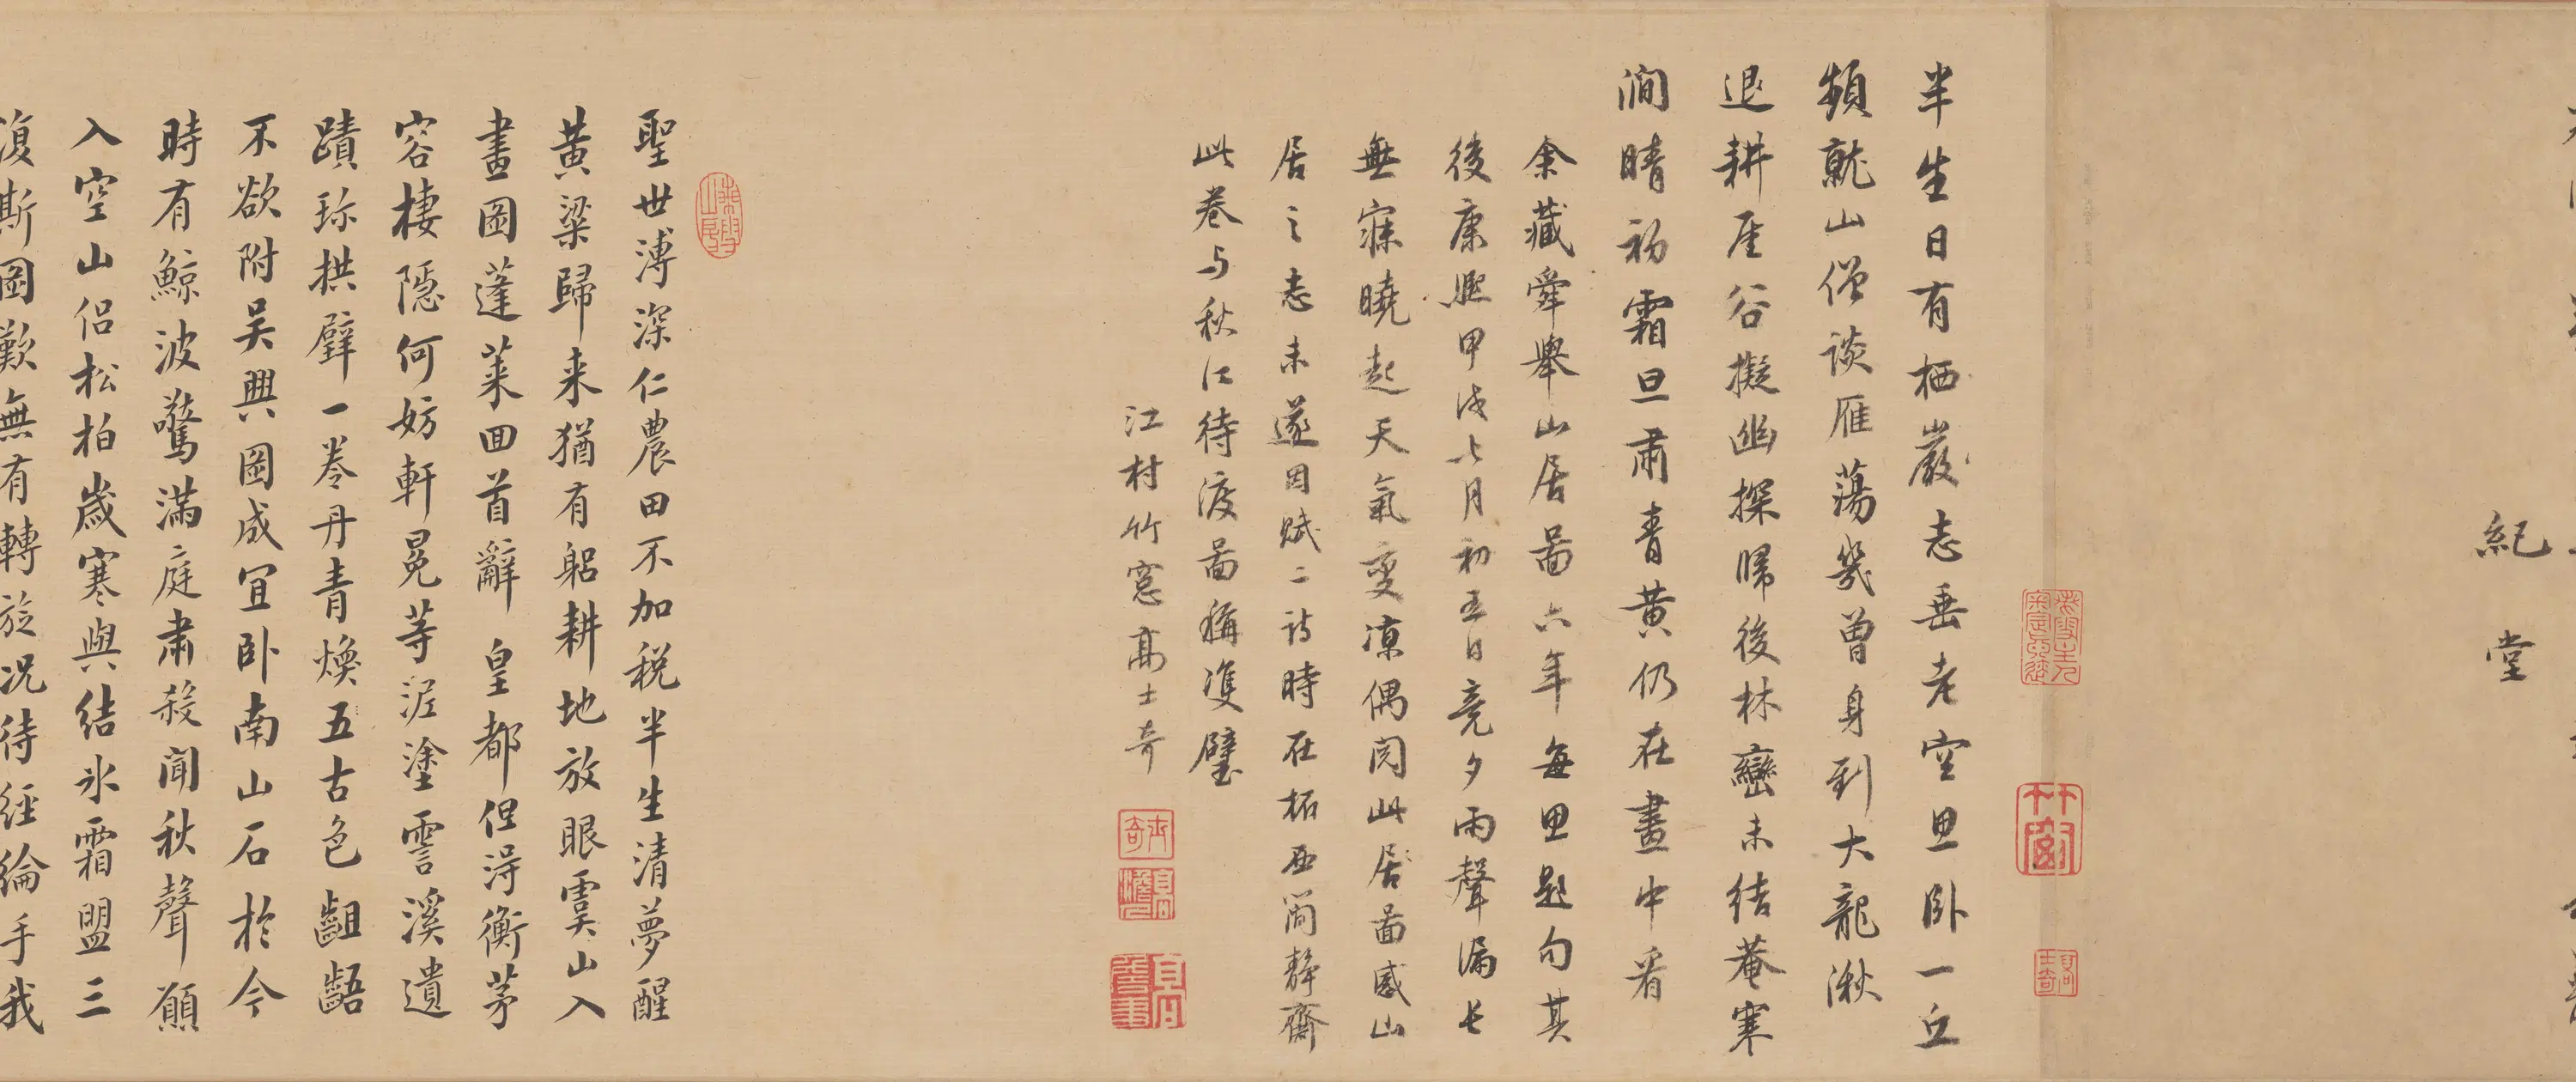 紀堂
半生日有栖巖志垂老空思卧一丘
頻就山僧談雁蕩幾曾身到大龍湫
退耕厓谷擬幽探歸後林巒未結菴寒
澗晴初霜旦肅青黄仍在畫中看
余藏舜舉山居圖六年每思題句其
後康熙甲戌七月初五日竟夕雨聲漏長
無寐曉起天氣變凉偶閱此居圖感山
居之志未遂因賦二詩時在柘西簡靜齋
此卷与秋江待渡圖稱雙璧
江村竹窗高士奇
聖世溥深仁農田不加税半生清夢醒
黄粱歸来猶有躬耕地放眼雲山入
畫圖蓬萊回首辭 皇都但得衡茅
容棲隱何妨軒冕等泥塗霅溪遺
蹟珎拱璧一卷丹青煥五古色齟齬
不欲附吴興圖成宜卧南山石於今
時有鯨波驚滿庭肅殺聞秋聲願
入空山侣松柏歲寒與結氷霜盟三
復斯圖歎無有轉旋况待經綸手我